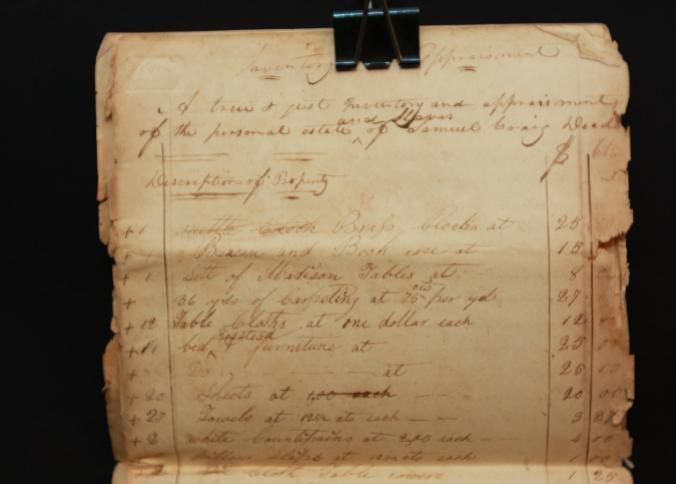 Inventory Appraisment
A true & just Inventory and appraisment
of the personal estate and Slaves of Samuel Craig Dead
$
Description of Property
+ 1 Brass Clocks at 25
Beacun and Book case at 15
+ 1 Sett of Madison Tables at 8
+ 36 yds of Carpeting at 75 cts per yd 27
+ 12 Table Cloths at one dollar each 12
+ 11 bed bedstead & furniture at 25 00
+ Do at 25 00
+ 20 Sheets at 1,00 each 20 00
+ 27 Towels at 12½ cts each 3
+ 2 white Countrpains at 2,00 each 4 00
pillow Slips at each 1 00
Cloth Table covers 1 25